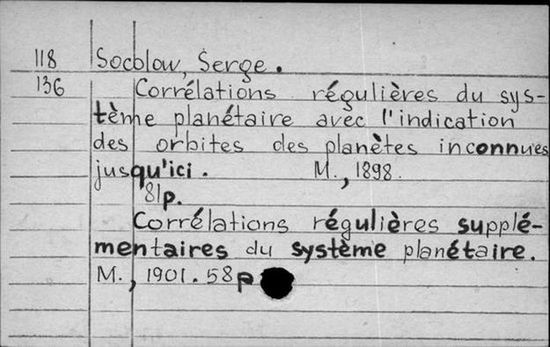 118 Socblow, Serge.
136 Corrélations régulières du sys-
tème planétaire avec l'indication
des orbites des planètes inconnues
jusqu'ici. M., 1898.
81p.
Corrélations régulières supplé-
mentaires du système planétaire.
M., 1901. 58p